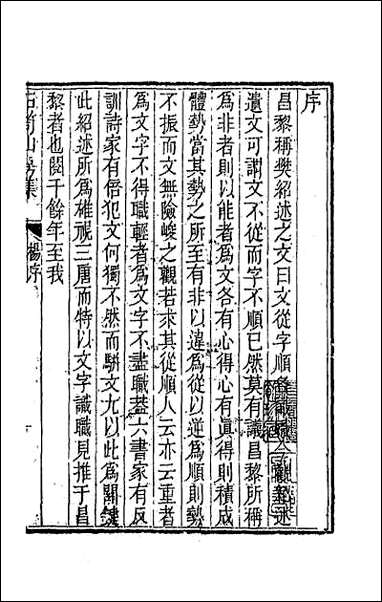 序
昌黎稱樊紹述之文曰文從字順各識職今觀紹述
遺文可謂文不從而字不順已然莫有議昌黎所稱
爲非者則以能者爲文各有心得心有眞得則積成
體勢當其勢之所至有非以違爲從以逆爲順則勢
不振而文無險峻之觀若求其從順人云亦云重者
爲文字不得職輕者爲文字不盡職葢六書家有反
訓詩家有倍犯文何獨不然而駢文尤以此爲關鍵
此紹述所爲雄視三唐而特以文字識職見推于昌
黎者也閱千餘年至我
石笥山房集
楊序